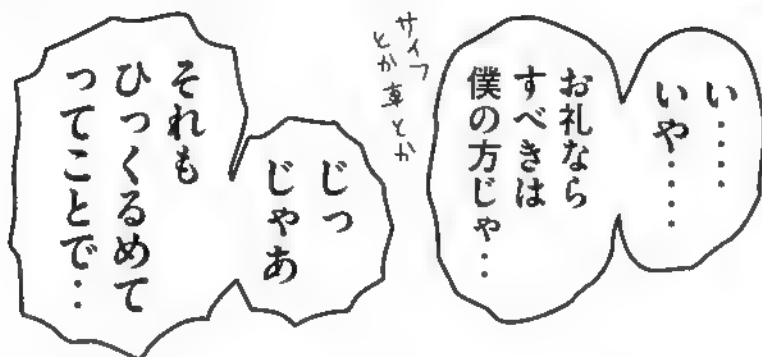 い‥‥
いや‥‥
お礼なら
すべきは
僕の方じゃ‥
サイフ
とか車とか
じっ
じゃあ
それも
ひっくるめて
ってことで‥